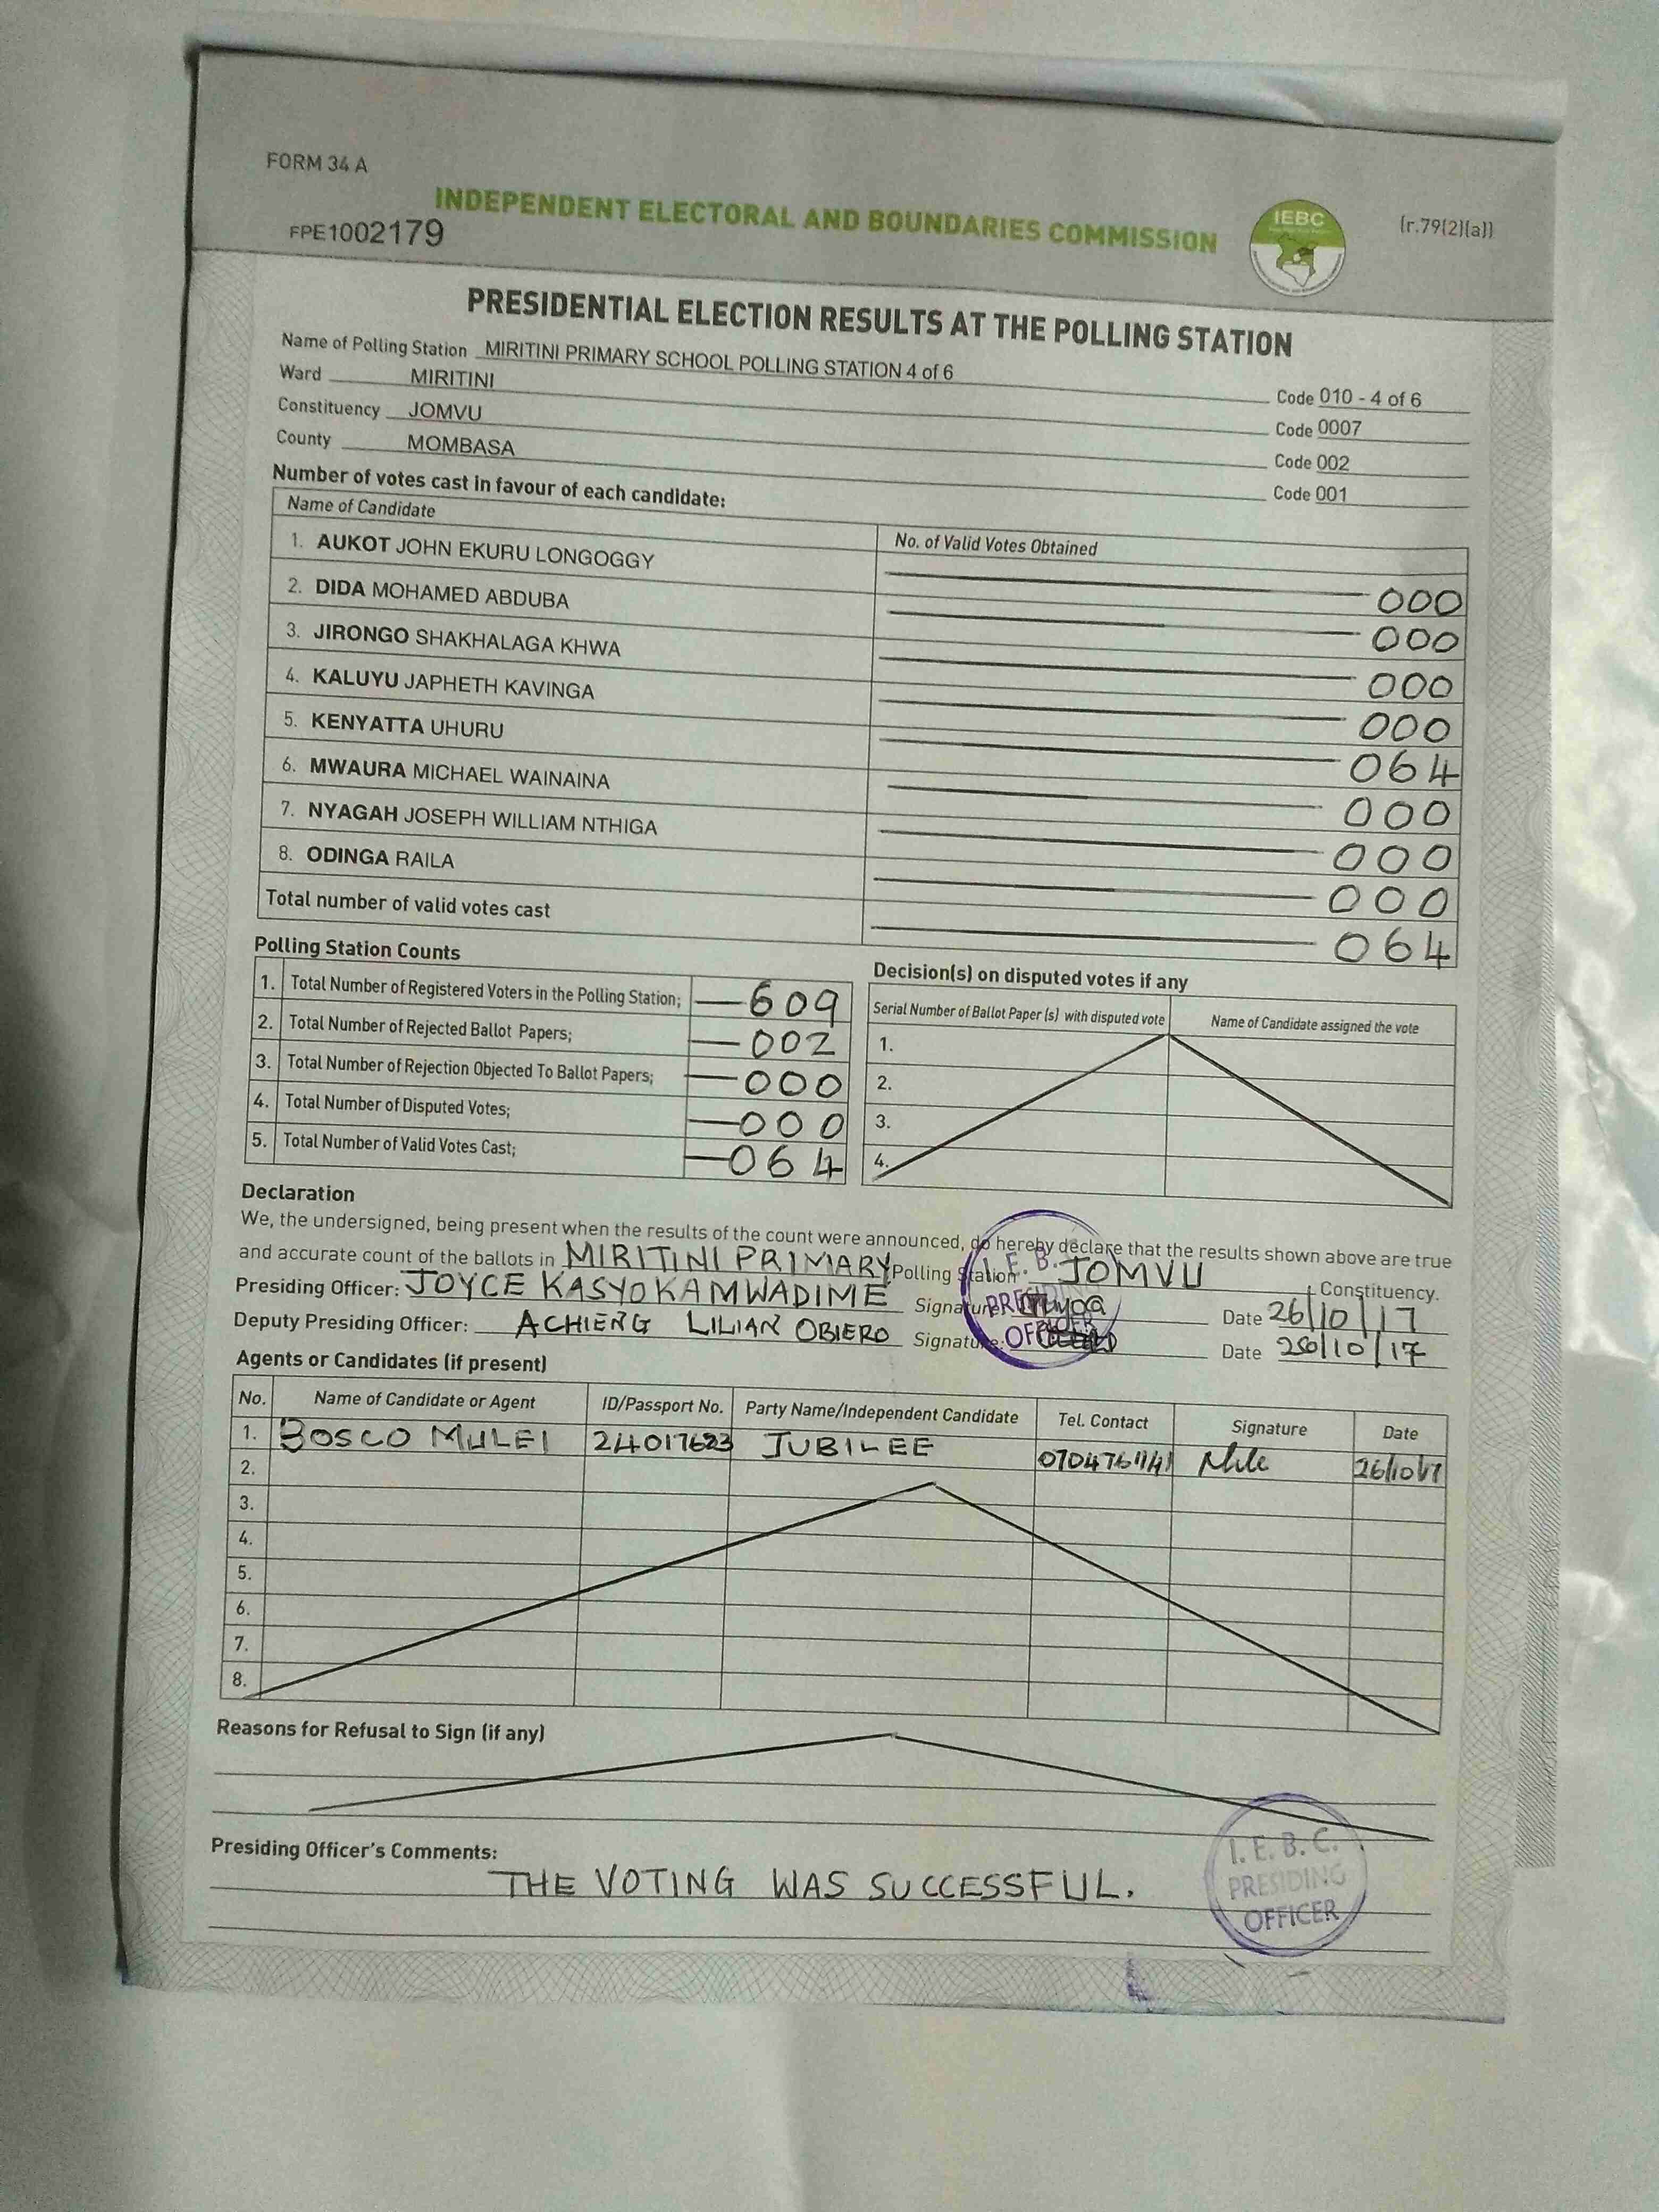 FORM 34 A
INDEPENDENT ELECTORAL AND BOUNDARIES COMMISSION
IEBC
(r.79(2)(a))
FPE1002179
PRESIDENTIAL ELECTION RESULTS AT THE POLLING STATION
Name of Polling Station MIRITINI PRIMARY SCHOOL POLLING STATION 4 of 6 Code 010 - 4 of 6
Ward MIRITINI Code 0007
Constituency JOMVU Code 002
County MOMBASA Code 001
Number of votes cast in favour of each candidate:
Name of Candidate No. of Valid Votes Obtained
1. AUKOT JOHN EKURU LONGOGGY 000
2. DIDA MOHAMED ABDUBA 000
3. JIRONGO SHAKHALAGA KHWA 000
4. KALUYU JAPHETH KAVINGA 000
5. KENYATTA UHURU 064
6. MWAURA MICHAEL WAINAINA 000
7. NYAGAH JOSEPH WILLIAM NTHIGA 000
8. ODINGA RAILA 000
Total number of valid votes cast 064
Polling Station Counts
1. Total Number of Registered Voters in the Polling Station; 609
2. Total Number of Rejected Ballot Papers; 002
3. Total Number of Rejection Objected To Ballot Papers; 000
4. Total Number of Disputed Votes; 000
5. Total Number of Valid Votes Cast; 064
Decision(s) on disputed votes if any
Serial Number of Ballot Paper (s) with disputed vote Name of Candidate assigned the vote
1.
2.
3.
4.
Declaration
We, the undersigned, being present when the results of the count were announced, do hereby declare that the results shown above are true
and accurate count of the ballots in MIRITINI PRIMARY Polling Station JOMVU Constituency.
Presiding Officer: JOYCE KASYOKA MWADIME Signature: Date 26/10/17
Deputy Presiding Officer: ACHIENG LILIAN OBIERO Signature: Date 26/10/17
I. E. B. PRESIDING OFFICER
Agents or Candidates (if present)
No. Name of Candidate or Agent ID/Passport No. Party Name/Independent Candidate Tel. Contact Signature Date
1. BOSCO MULEI 24017623 JUBILEE 26/10/17
2.
3.
4.
5.
6.
7.
8.
Reasons for Refusal to Sign (if any)
Presiding Officer's Comments:
THE VOTING WAS SUCCESSFUL.
I. E. B. C.
PRESIDING
OFFICER